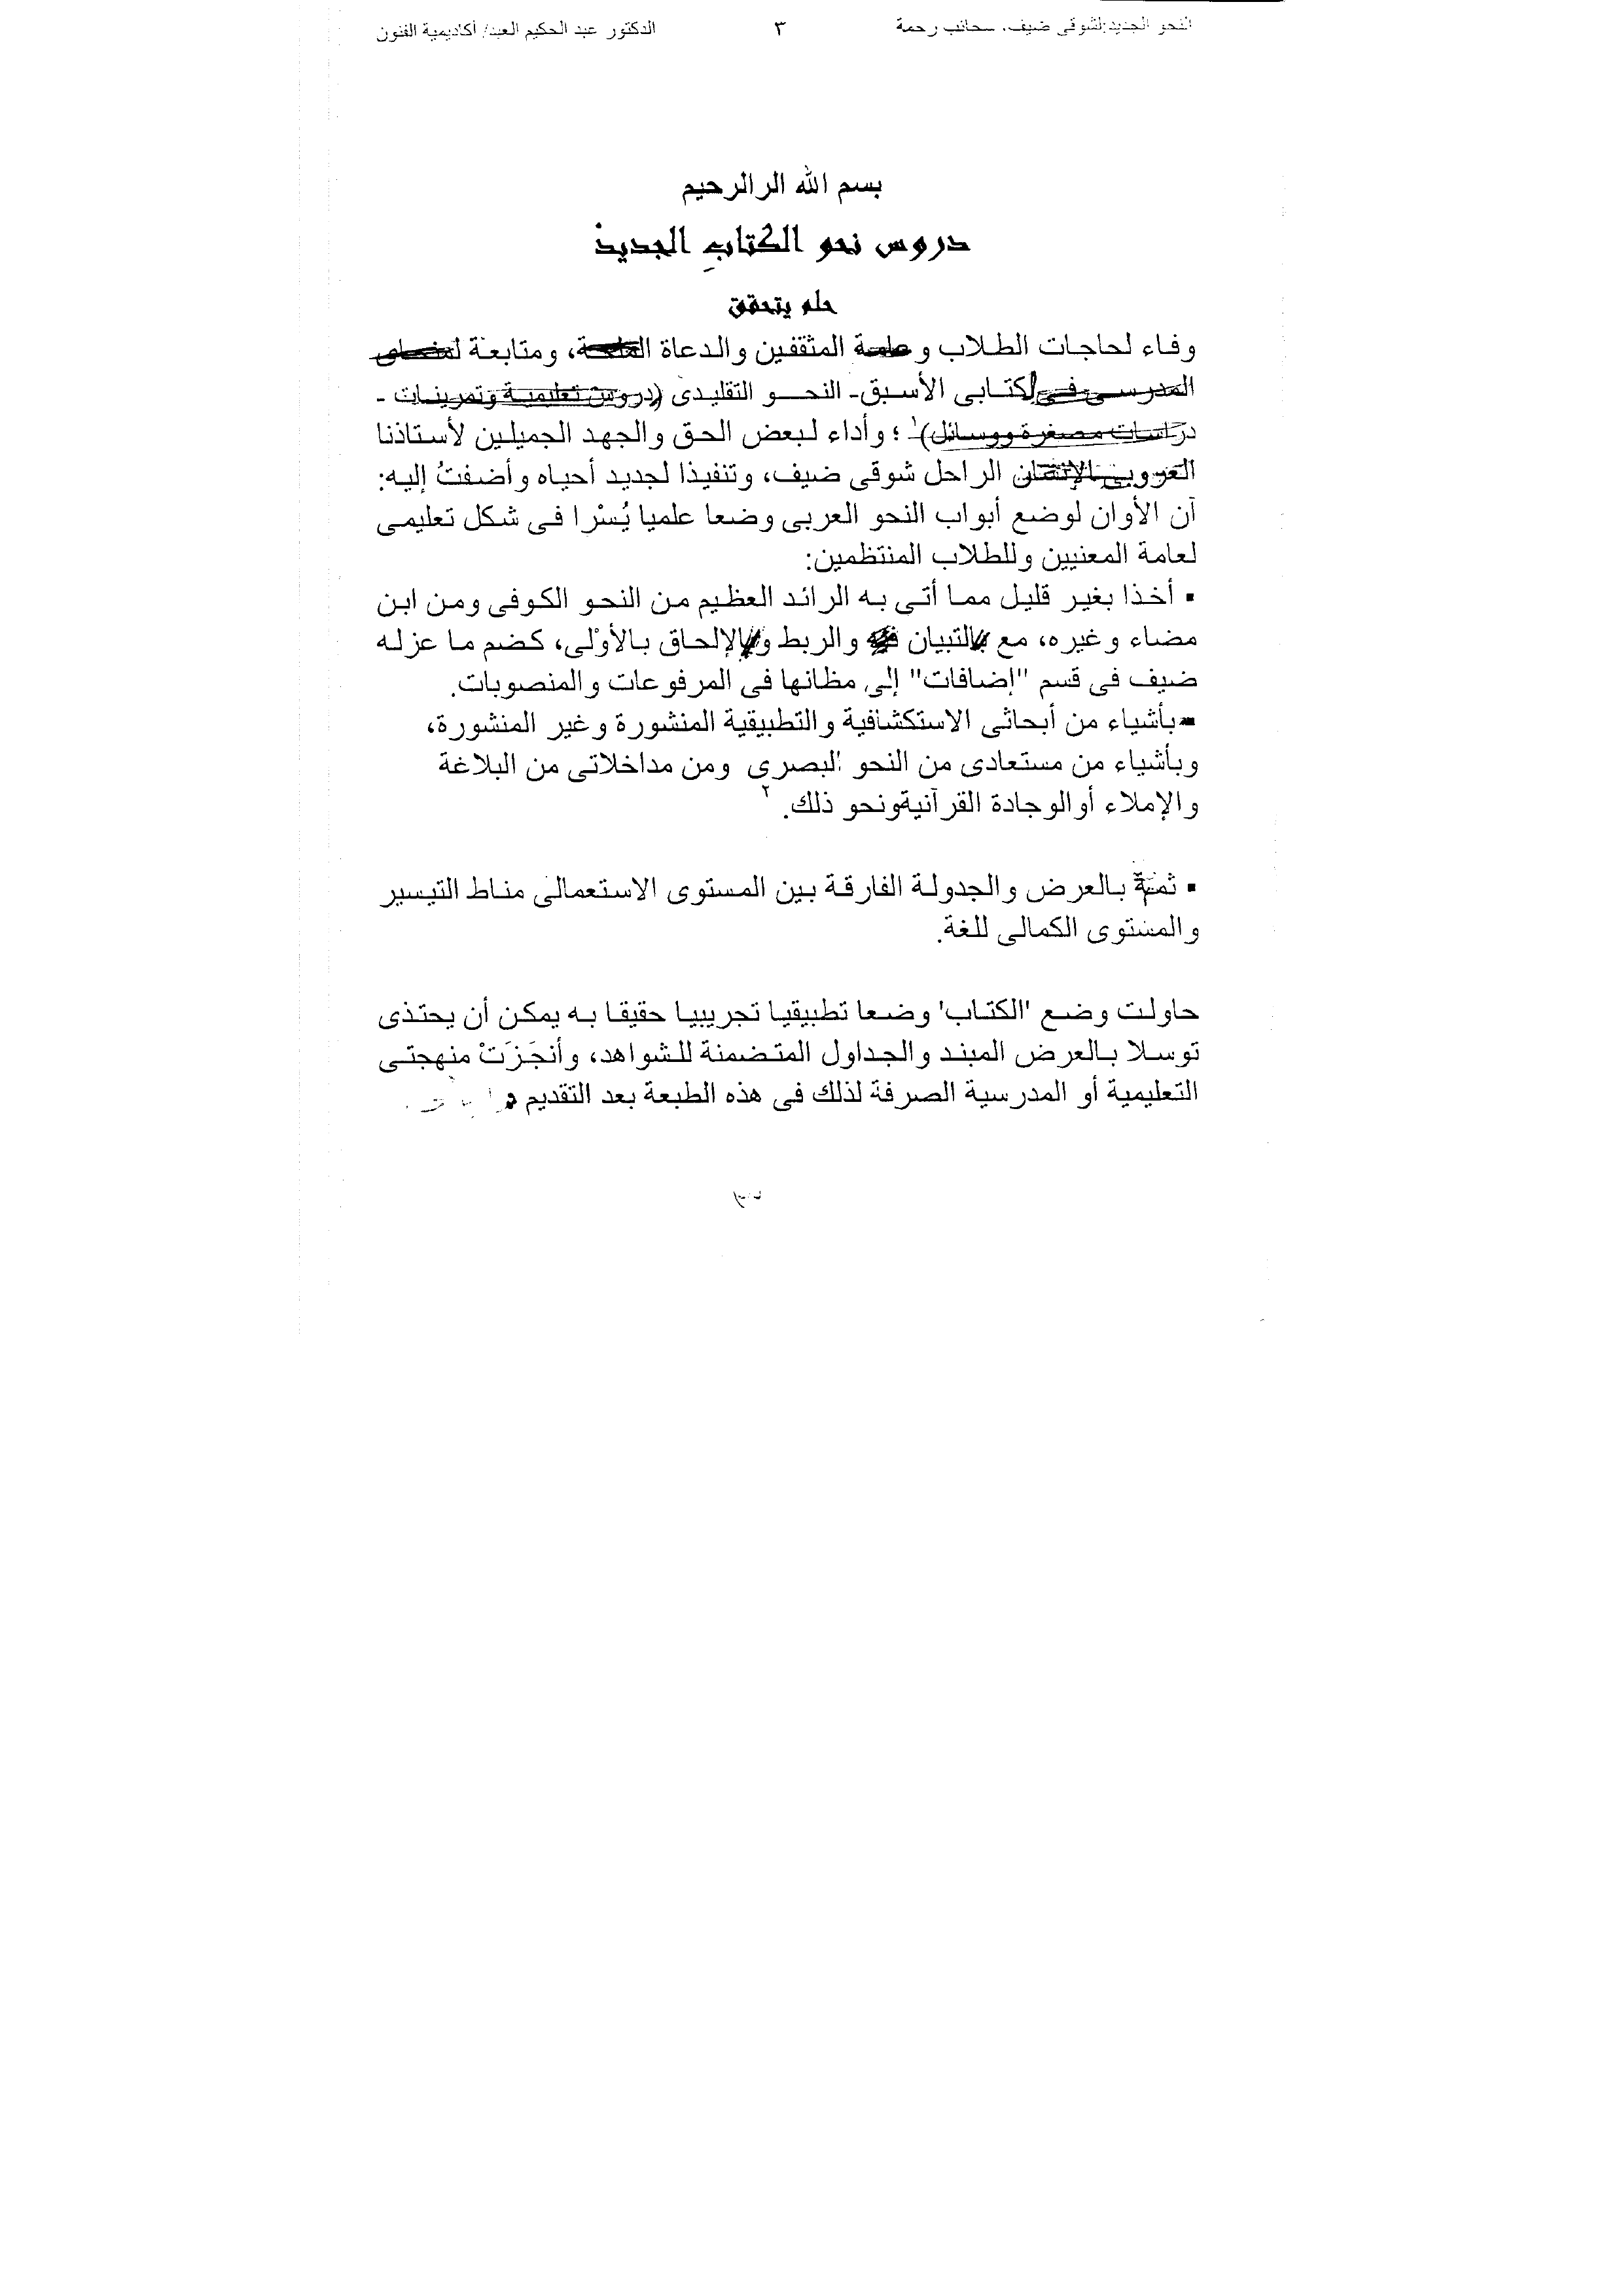 النحو الجديد لشوقى ضيف، سحائب رحمة ٣ الدكتور عبد الحكيم العبد/ أكاديمية الفنون
بسم الله الرالرحيم
دروس نحو الكتاب الجديد
حلم يتحقق
وفاء لحاجات الطلاب و المثقفين والدعاة ، ومتابعة
المدرسى فى لكتابى الأسبق- النحو التقليدى (دروس تعليمية وتمرينات -
دراسات مصغرة ووسائل)١ ؛ وأداء لبعض الحق والجهد الجميلين لأستاذنا
الراحل شوقى ضيف، وتنفيذا لجديد أحياه وأضفتُ إليه:
آن الأوان لوضع أبواب النحو العربى وضعا علميا يُسْرا فى شكل تعليمى
لعامة المعنيين وللطلاب المنتظمين:
▪ أخذا بغير قليل مما أتى به الرائد العظيم من النحو الكوفى ومن ابن
مضاء وغيره، مع التبيان والربط والإلحاق بالأوْلى، كضم ما عزله
ضيف فى قسم "إضافات" إلى مظانها فى المرفوعات والمنصوبات.
▪بأشياء من أبحاثى الاستكشافية والتطبيقية المنشورة وغير المنشورة،
وبأشياء من مستعادى من النحو البصرى ومن مداخلاتى من البلاغة
والإملاء أوالوجادة القرآنيةونحو ذلك.٢
▪ ثمة بالعرض والجدولة الفارقة بين المستوى الاستعمالى مناط التيسير
والمستوى الكمالى للغة.
حاولت وضع 'الكتاب' وضعا تطبيقيا تجريبيا حقيقا به يمكن أن يحتذى
توسلا بالعرض المبند والجداول المتضمنة للشواهد، وأنجَزَتْ منهجتى
التعليمية أو المدرسية الصرفة لذلك فى هذه الطبعة بعد التقديم